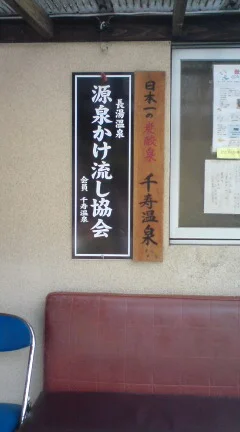 日本一の炭酸泉 千寿温泉
長湯温泉
源泉かけ流し協会
会員 千寿温泉